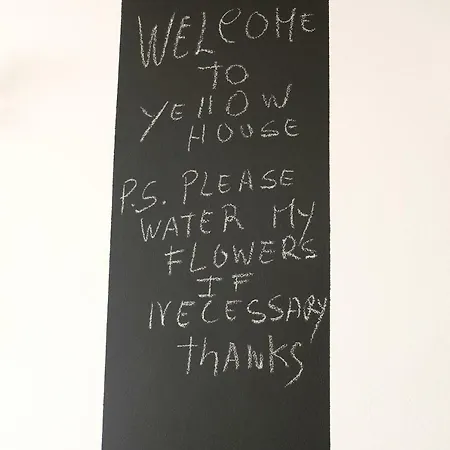 WELCOME
TO
YELLOW
HOUSE
P.S. PLEASE
WATER MY
FLOWERS
IF
NECESSARY
THANKS